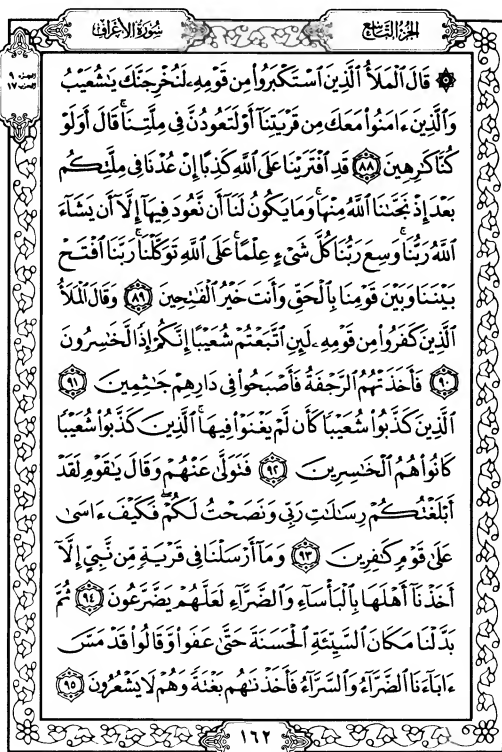 سُورَةُ الأَعْرَافِ الجُزْءُ التَّاسِعُ
الجزء ٩
الحزب ١٧
۞ قَالَ ٱلْمَلَأُ ٱلَّذِينَ ٱسْتَكْبَرُوا۟ مِن قَوْمِهِۦ لَنُخْرِجَنَّكَ يَٰشُعَيْبُ
وَٱلَّذِينَ ءَامَنُوا۟ مَعَكَ مِن قَرْيَتِنَآ أَوْ لَتَعُودُنَّ فِى مِلَّتِنَا ۚ قَالَ أَوَلَوْ
كُنَّا كَٰرِهِينَ ٨٨ قَدِ ٱفْتَرَيْنَا عَلَى ٱللَّهِ كَذِبًا إِنْ عُدْنَا فِى مِلَّتِكُم
بَعْدَ إِذْ نَجَّىٰنَا ٱللَّهُ مِنْهَا ۚ وَمَا يَكُونُ لَنَآ أَن نَّعُودَ فِيهَآ إِلَّآ أَن يَشَآءَ
ٱللَّهُ رَبُّنَا ۚ وَسِعَ رَبُّنَا كُلَّ شَىْءٍ عِلْمًا ۚ عَلَى ٱللَّهِ تَوَكَّلْنَا ۚ رَبَّنَا ٱفْتَحْ
بَيْنَنَا وَبَيْنَ قَوْمِنَا بِٱلْحَقِّ وَأَنتَ خَيْرُ ٱلْفَٰتِحِينَ ٨٩ وَقَالَ ٱلْمَلَأُ
ٱلَّذِينَ كَفَرُوا۟ مِن قَوْمِهِۦ لَئِنِ ٱتَّبَعْتُمْ شُعَيْبًا إِنَّكُمْ إِذًا لَّخَٰسِرُونَ
٩٠ فَأَخَذَتْهُمُ ٱلرَّجْفَةُ فَأَصْبَحُوا۟ فِى دَارِهِمْ جَٰثِمِينَ ٩١
ٱلَّذِينَ كَذَّبُوا۟ شُعَيْبًا كَأَن لَّمْ يَغْنَوْا۟ فِيهَا ۚ ٱلَّذِينَ كَذَّبُوا۟ شُعَيْبًا
كَانُوا۟ هُمُ ٱلْخَٰسِرِينَ ٩٢ فَتَوَلَّىٰ عَنْهُمْ وَقَالَ يَٰقَوْمِ لَقَدْ
أَبْلَغْتُكُمْ رِسَٰلَٰتِ رَبِّى وَنَصَحْتُ لَكُمْ ۖ فَكَيْفَ ءَاسَىٰ
عَلَىٰ قَوْمٍ كَٰفِرِينَ ٩٣ وَمَآ أَرْسَلْنَا فِى قَرْيَةٍ مِّن نَّبِىٍّ إِلَّآ
أَخَذْنَآ أَهْلَهَا بِٱلْبَأْسَآءِ وَٱلضَّرَّآءِ لَعَلَّهُمْ يَضَّرَّعُونَ ٩٤ ثُمَّ
بَدَّلْنَا مَكَانَ ٱلسَّيِّئَةِ ٱلْحَسَنَةَ حَتَّىٰ عَفَوا۟ وَّقَالُوا۟ قَدْ مَسَّ
ءَابَآءَنَا ٱلضَّرَّآءُ وَٱلسَّرَّآءُ فَأَخَذْنَٰهُم بَغْتَةً وَهُمْ لَا يَشْعُرُونَ ٩٥
١٦٢